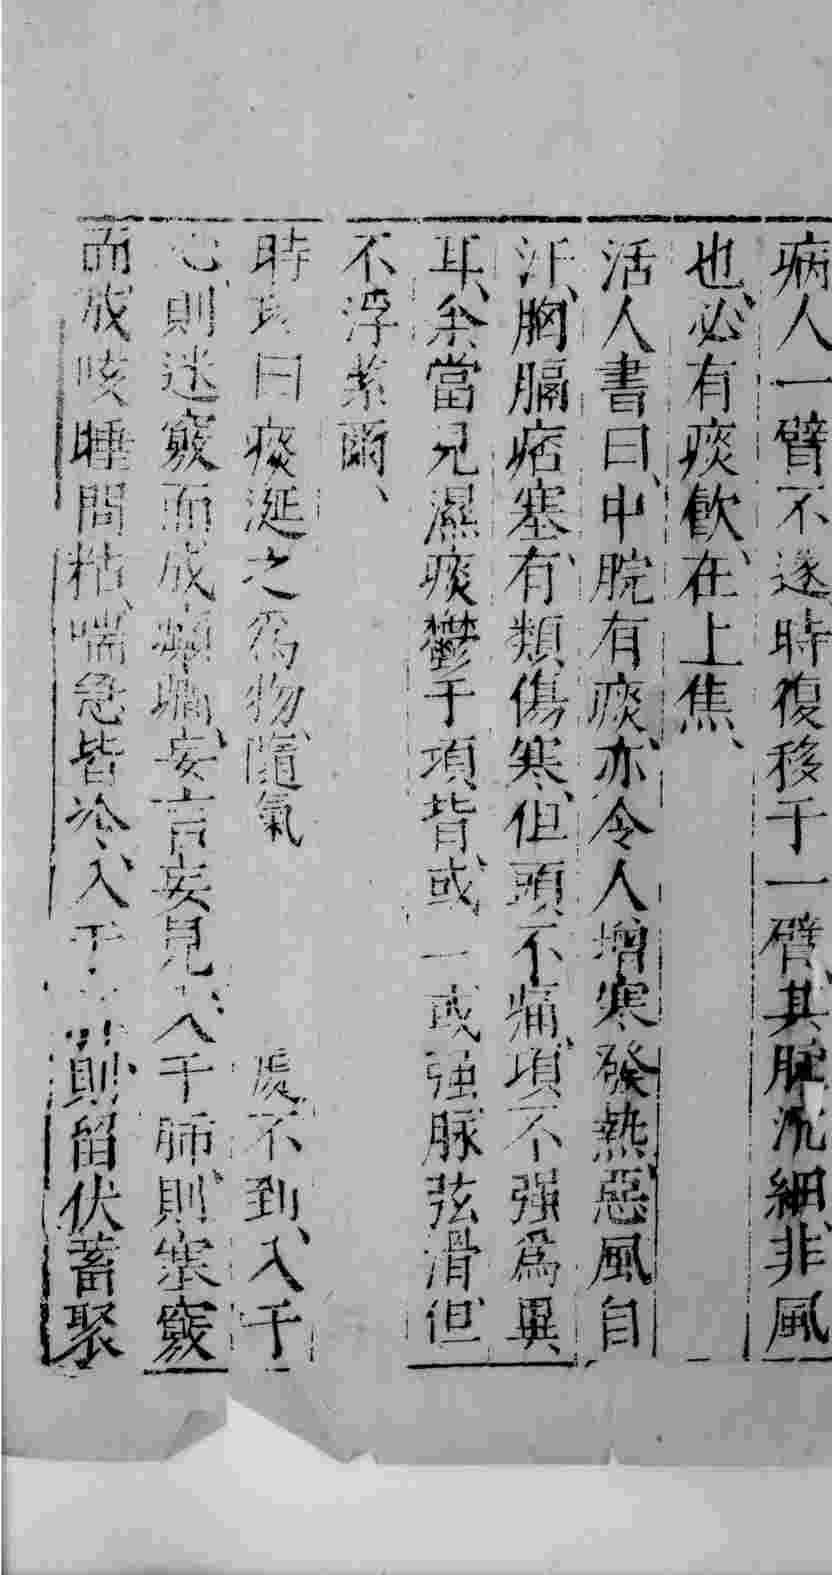 病人一臂不遂時復移于一臂、其脈沉細、非風
也、必有痰飲、在上焦、
活人書曰、中脘有痰、亦令人增寒發熱、惡風自
汗、胸膈痞塞、有類傷寒、但頭不痛、項不强爲異
耳、余當見濕痰鬱于項背、或一或强脉弦滑、但
不浮紧爾、
時 曰痰涎之爲物、隨氣 處不到、入于
心、則迷竅而成癲癇、妄言妄見、入于肺、則塞竅
而成咳唾間枯、喘急皆冷、入于 則留伏蓄聚